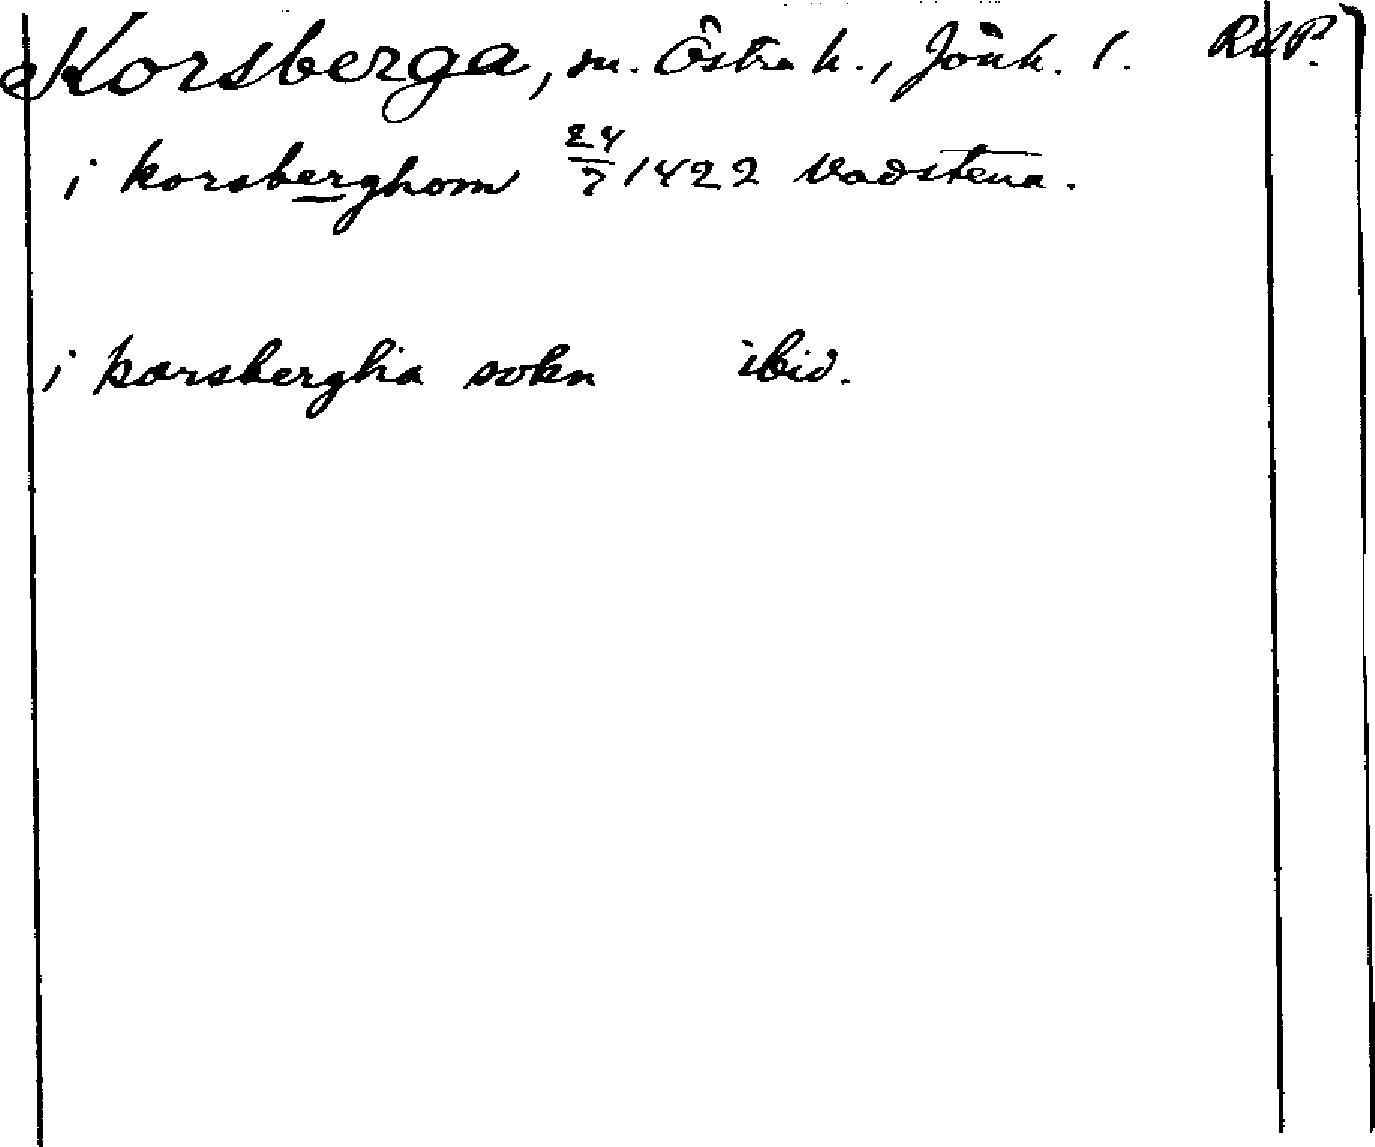 Korsberga, sn. Östra h., Jönk. l. RAP.
i korsberghom 24/7 1422 Vadstena.
i korsbergha sokn ibid.